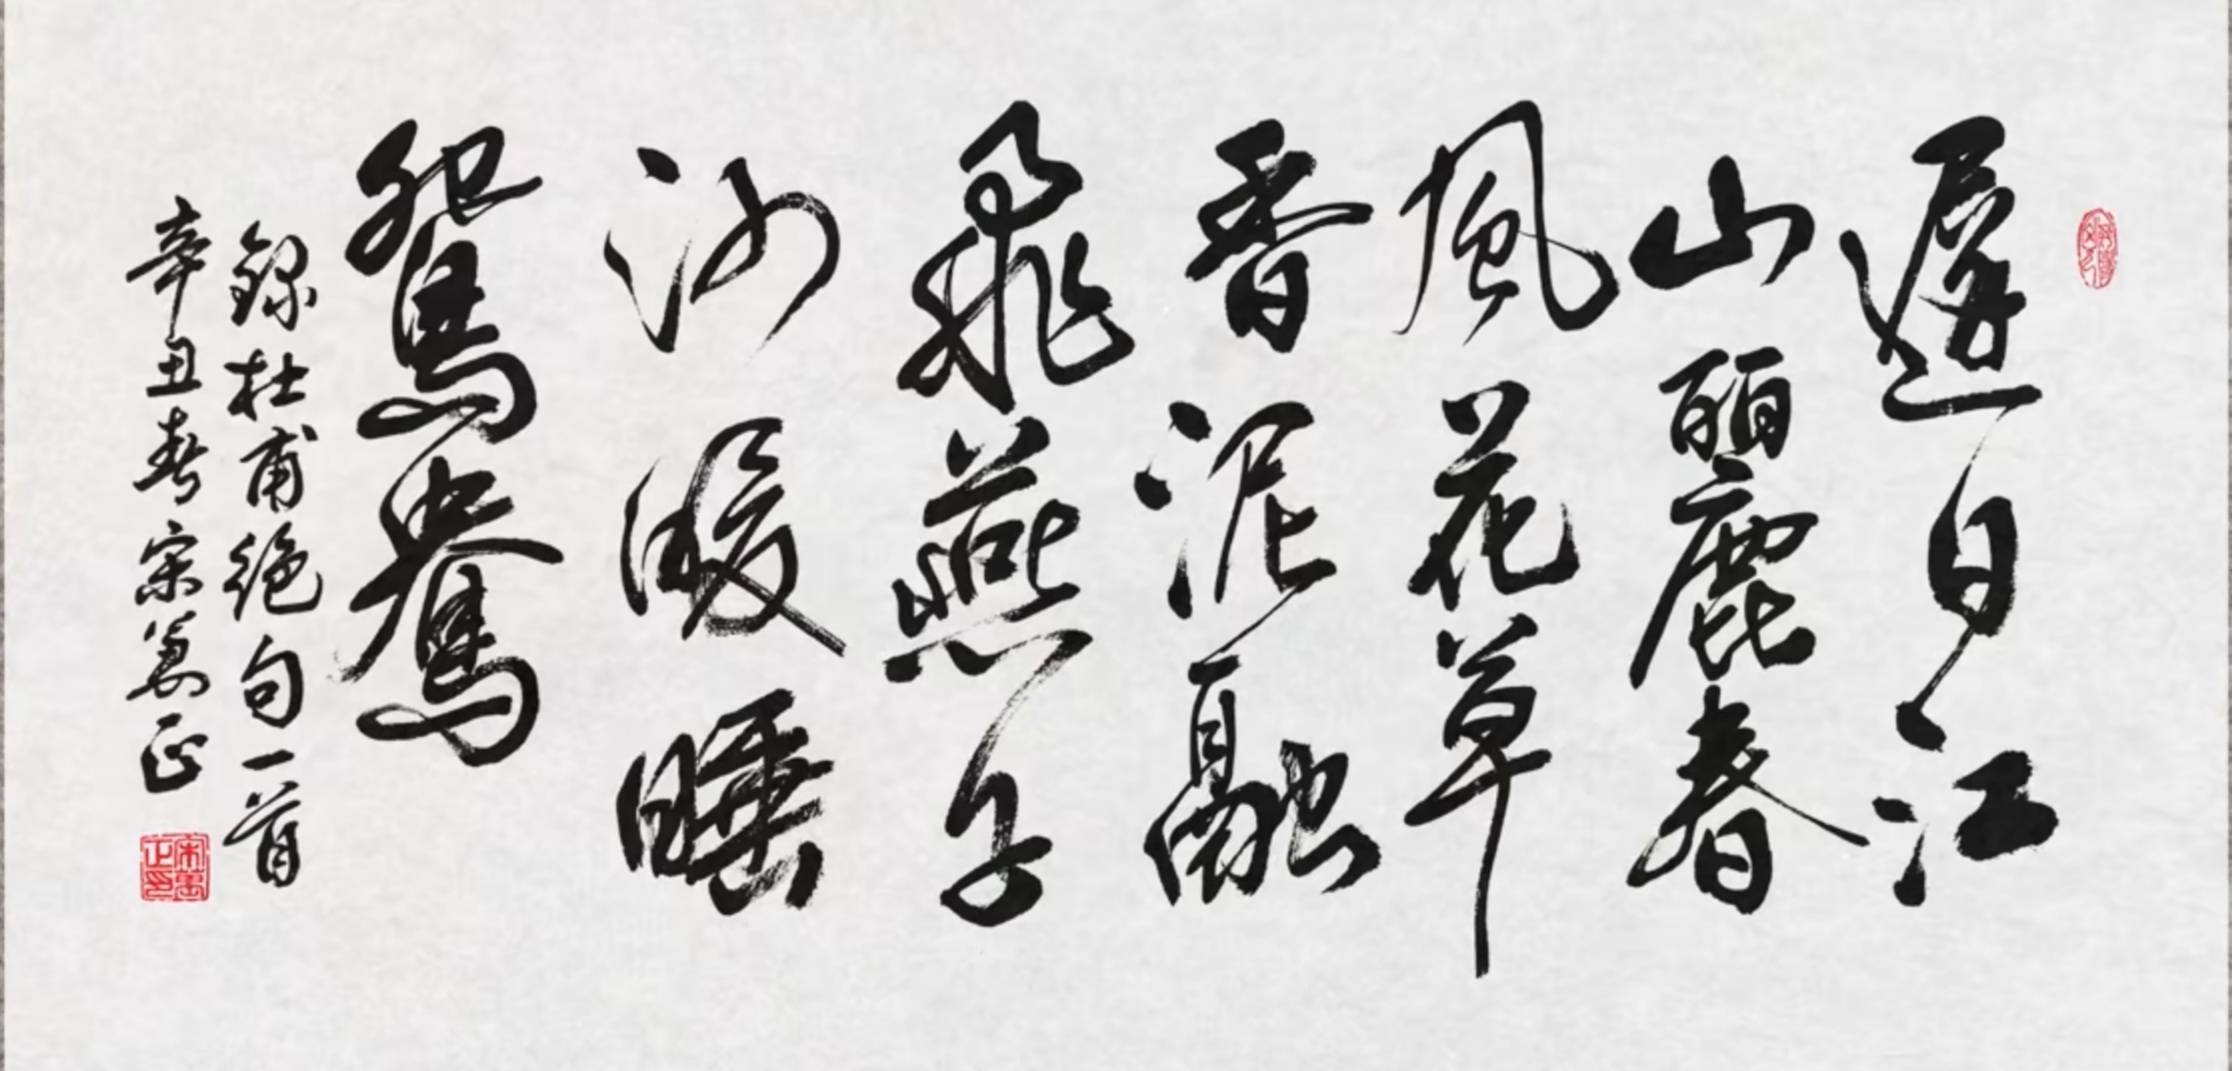 遲日江
山麗春
風花草
香泥融
飛燕子
沙暖睡
鴛鴦
錄杜甫絕句一首
辛丑春宗萬正